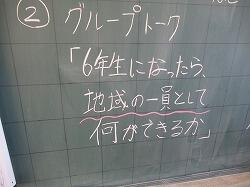 ② グループトーク
「6年生になったら、
地域の一員として
何ができるか」